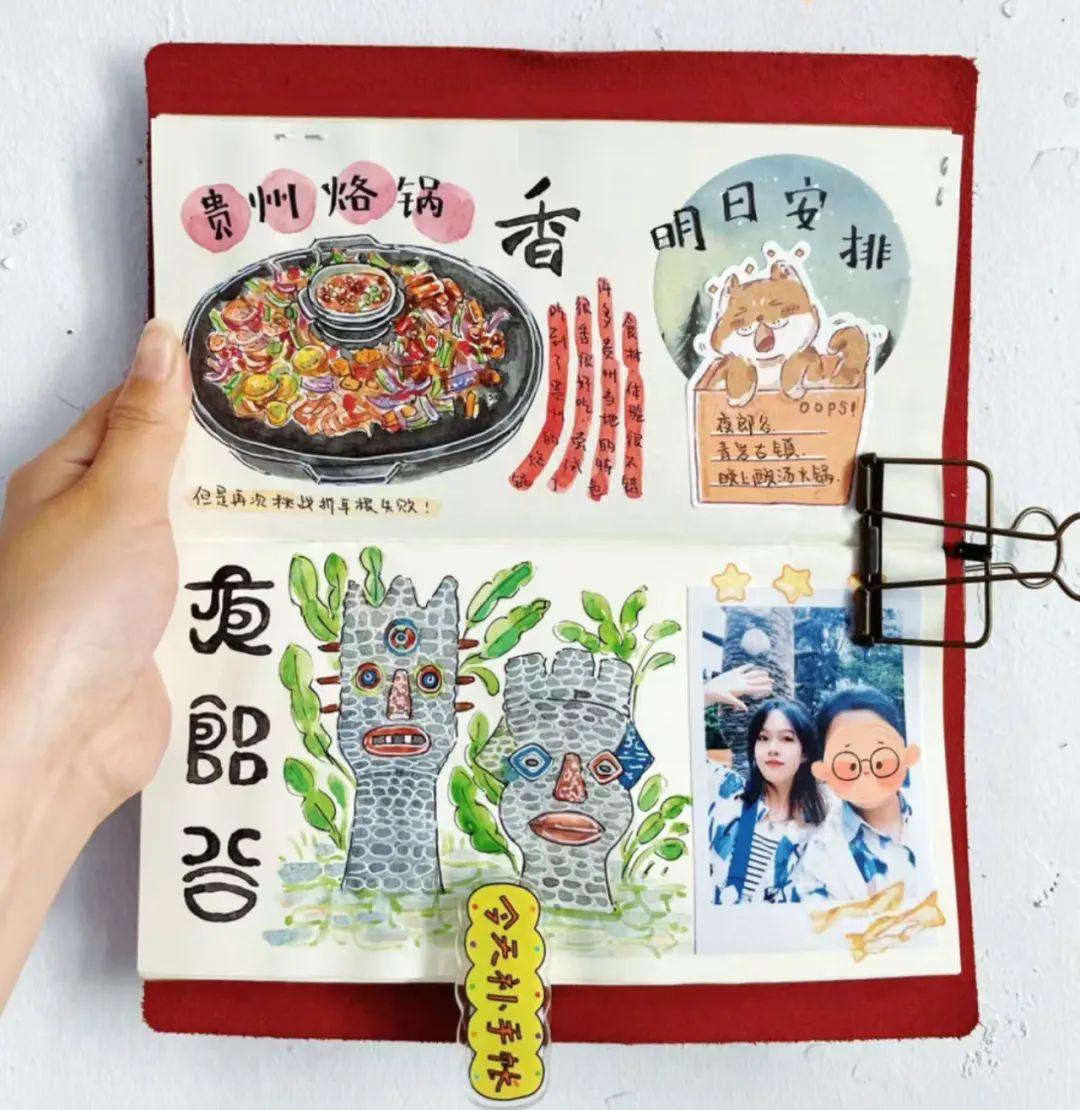 贵州烙锅
香
吃到了贵州的烙锅
很香很好吃,尝试了
许多贵州当地的特色
食材体验很不错
明日安排
OOPS!
夜郎谷.
青岩古镇.
晚上酸汤火锅.
但是再次挑战折耳根失败!
夜
郎
谷
今天补手帐